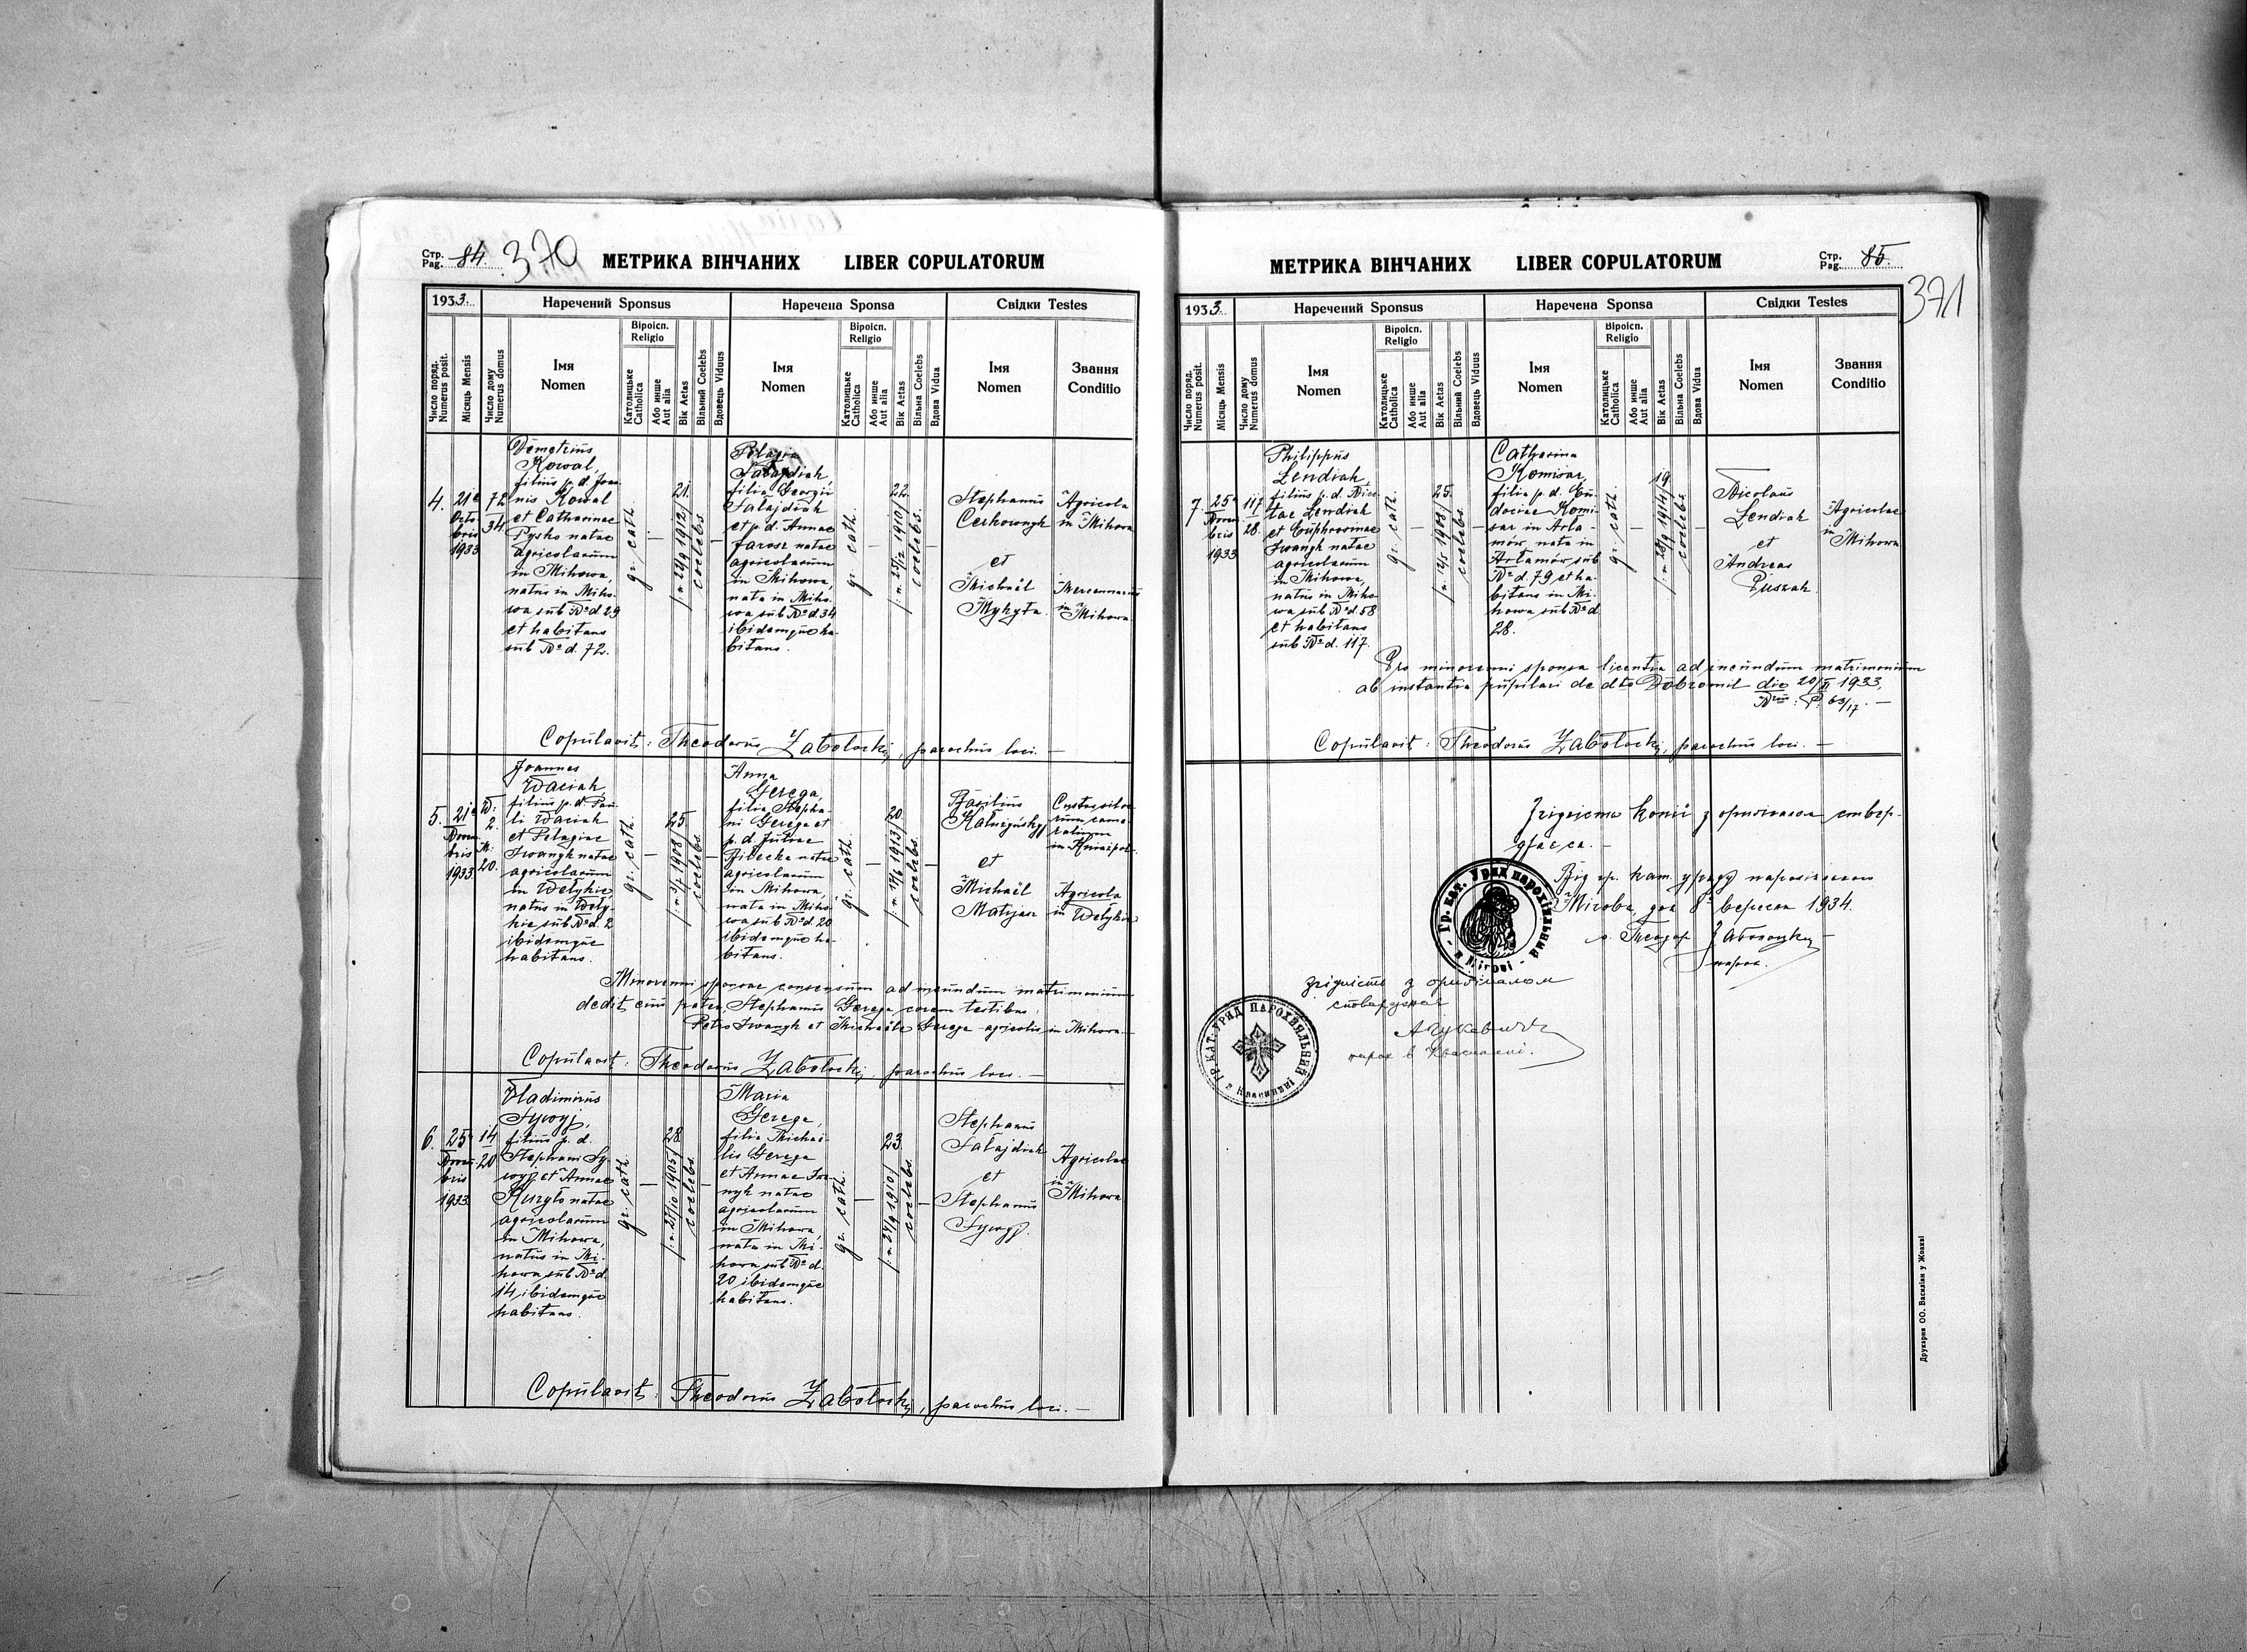 Стр. Pag. 84. 370
МЕТРИКА ВІНЧАНИХ LIBER COPULATORUM
1933.
Наречений Sponsus
Наречена Sponsa
Свідки Testes
Число поряд. Numerus posit.
Місяць Mensis
Число дому Numerus domus
Імя Nomen
Віроісп. Religio
Католицьке Catholica
Або инше Aut alia
Вік Aetas
Вільний Coelebs
Вдовець Viduus
Імя Nomen
Віроісп. Religio
Католицьке Catholica
Або инше Aut alia
Вік Aetas
Вільна Coelebs
Вдова Vidua
Імя Nomen
Звання Conditio
4.
21a
Octo
bris
1933
72
34
Demetrius
Kowal,
filius p. d. Joan
nis Kowal
et Catharinae
Pysko natae
agricolarum
in Mihowa,
natus in Miho
wa sub No d. 29
et habitans
sub No d. 72.
gr. cath.
21.
/: n. 29/9 1912/
coelebs
Pelagia
Fałajdiak,
filia Georgii
Fałajdiak
et p. d. Annae
Jarosz natae
agricolarum
in Mihowa,
nata in Miho
wa sub No d 34
ibidemque ha
bitans.
gr. cath.
22.
coelebs
Stephanus
et
Michaël
Mykyta
Agricola
in Mihowa
Mercennarius
in Mihowa
Copulavit: Theodorus Zabołockij, parochus loci. —
5.
21a
bris
1933
W:
2.
M:
20.
Joannes
Waciak,
filius p. d. Pau
li Waciak
et Pelagiae
Iwanyk natae
agricolarum
in Wełykie,
natus in Weły
kie sub No d. 2
ibidemque
habitans.
gr. cath.
25.
/: n. 3/7 1908/
coelebs
Anna
Gerega,
filia Stepha
ni Gerega et
p. d. Juliae
Bilecka natae
agricolarum
in Mihowa,
nata in Miho
wa sub No d. 20
ibidemque ha
bitans.
gr. cath.
20.
/: n. 17/6 1913/
coelebs
Basilius
et
Michaël
Matijasz
in
Agricola
in Wełykie
Minorenni sponsae consensum ad ineundum matrimonium
dedit eius pater, Stephanus Gerega coram testibus:
Petro Iwanyk et Michaële Gerega agricolis in Mihowa. —
Copulavit: Theodorus Zabołockij, parochus loci. —
6.
25a
bris
1933
14
20
Vladimirus
Sywyj,
filius p. d.
Stephani Sy
wyj et Annae
Kuryło natae
agricolarum
in Mihowa,
natus in Mi
howa sub No d.
14, ibidemque
habitans.
gr. cath.
28.
/: n. 27/10 1905/
coelebs
Maria
Gerega,
filia Michaë
lis Gerega
et Annae Iwa
nyk natae
agricolarum
in Mihowa,
nata in Mi
howa sub No d.
20 ibidemque
habitans.
gr. cath.
23.
coelebs
Stephanus
Fałajdiak
et
Stephanus
Sywyj.
Agricolae
in
Mihowa
Copulavit: Theodorus Zabołockij, parochus loci. —
МЕТРИКА ВІНЧАНИХ LIBER COPULATORUM
Стр. Pag. 85.
371
1933.
Наречений Sponsus
Наречена Sponsa
Свідки Testes
Число поряд. Numerus posit.
Місяць Mensis
Число дому Numerus domus
Імя Nomen
Віроісп. Religio
Католицьке Catholica
Або инше Aut alia
Вік Aetas
Вільний Coelebs
Вдовець Viduus
Імя Nomen
Віроісп. Religio
Католицьке Catholica
Або инше Aut alia
Вік Aetas
Вільна Coelebs
Вдова Vidua
Імя Nomen
Звання Conditio
7.
25a
bris
1933
117
28.
Philippus
Lendiak,
filius p. d. Nice
tae Lendiak
et Euphrosinae
Iwanyk natae
agricolarum
in Mihowa,
natus in Miho
wa sub No d. 58
et habitans
sub No d. 117.
gr. cath.
25.
coelebs
Catharina
Komisar,
filia p. d. Eu
dociae Komi
sar in Arła
mów, nata in
Arłamów sub
No d. 79 et ha
bitans in Mi
howa sub No d.
28.
gr. cath.
19.
coelebs
Nicolaus
Lendiak
et
Andreas
Agricolae
in
Mihowa
Pro minorenni sponsa licentia ad ineundum matrimonium
ab instantia pupilari de dto Dobromil die 20/XI 1933,
Nrus: P. 63/17. —
Copulavit: Theodorus Zabołockij, parochus loci. —
Згідність копії з оригіналом ствер-
джаєся. —
Від гр. кат. уряду парохіяльного
Мігова, дня 8 вересня 1934.
о. Теодор Заболоцкий
парох.
Гр. кат. Уряд парохіяльний в Мігові
згідність з оригіналом
стверджає
парох в Квасинині.
ГР. КАТ. УРЯД ПАРОХІЯЛЬНИЙ в Квасинині
Друкарня ОО. Василіян у Жовкві